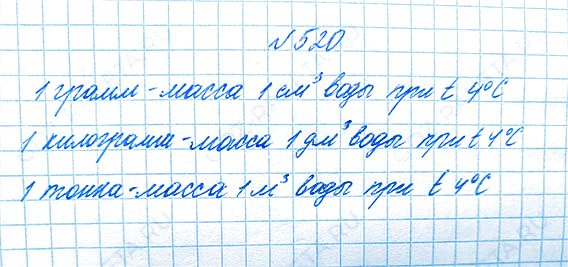 №520
1 грамм - масса 1 см³ воды при t 4°C
1 килограмм - масса 1 дм³ воды при t 4°C
1 тонна - масса 1 м³ воды при t 4°C